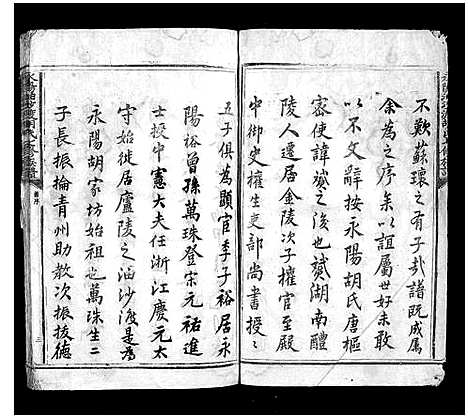 不歎蘇環之有子哉諸既成屬
余為之序余以誼屬世好未敢
以不文辭按永陽胡氏唐樞
密使諱城之後也城湖南醴
陵人遷居金陵次子權官至殿
中御史權生吏部尚書授授
五子俱為顯官季子裕居永
陽裕曾孫萬珠登宋元祐進
士授中憲大夫任浙江慶元太
守始徙居廬陵之油沙渡是為
永陽胡家坊始祖也萬珠生二
子長振掄青州助教次振拔德